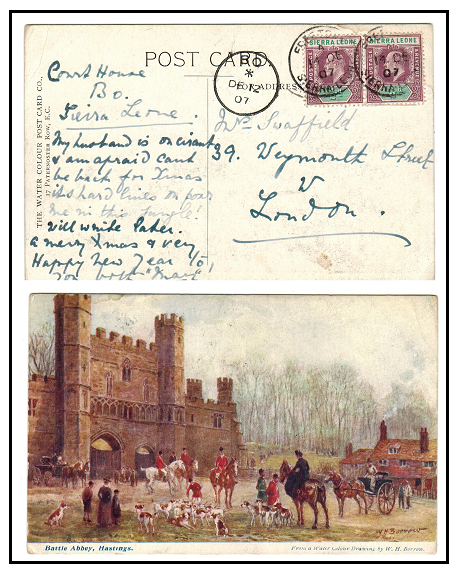 POST CARD.
THE WATER COLOUR POST CARD CO.,
17 PATERNOSTER ROW, E.C.
FOR ADDRESS
BO
*
DE 12
07
SIERRA LEONE
SIERRA LEONE
07
07
Court House
Bo.
Sierra Leone.
My husband is on circuit
& am afraid cant
be back for Xmas
its hard lines on poor
me in this jungle!
Will write later.
a merry Xmas & very
Happy New Year to
you both
Mrs Swaffield
39. Weymouth Street
W
London.
Battle Abbey, Hastings.
From a Water Colour Drawing by W. H. Borrow.
W.H. BORROW